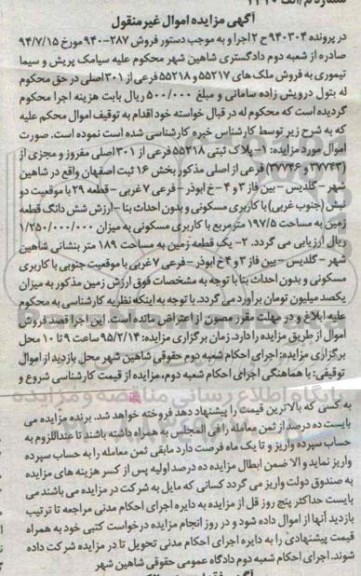 آگهی مزایده اموال غیرمنقول
در پرونده ۹۴۰۳۰۴ ح ۲ اجرا و به موجب دستور فروش ۲۸۷-۹۴۰ مورخ ۹۴/۷/۱۵
صادره از شعبه دوم دادگستری شاهین شهر محکوم علیه سیامک پریش و سیما
تیموری به فروش ملک های ۵۵۲۱۷ و ۵۵۲۱۸ فرعی از ۳۰۱ اصلی در حق محکوم
له بتول درویش زاده سامانی و مبلغ ۵۰۰/۰۰۰ ریال بابت هزینه اجرا محکوم
گردیده است که محکوم له در قبال خواسته خود اقدام به توقیف اموال محکم علیه
که به شرح زیر توسط کارشناس خبره کارشناسی شده است نموده است. صورت
اموال مورد مزایده: ۱- پلاک ثبتی ۵۵۲۱۸ فرعی از ۳۰۱ اصلی مفروز و مجزی از
(۳۷۷۴۳ و ۳۷۷۴۶) فرعی از اصلی مذکور بخش ۱۶ ثبت اصفهان واقع در شاهین
شهر - گلدیس - بین فاز ۳ و ۴ - خ ابوذر - فرعی ۷ غربی - قطعه ۲۹ با موقعیت دو
نبش (جنوب غربی) با کاربری مسکونی و بدون احداث بنا - ارزش شش دانگ قطعه
زمین به مساحت ۱۹۷/۵ متر مربع با کاربری مسکونی به میزان ۱/۲۵۰/۰۰۰/۰۰۰
ریال ارزیابی می گردد. ۲- یک قطعه زمین به مساحت ۱۸۹ متر بنشانی شاهین
شهر - گلدیس - بین فاز ۳ و ۴ خ ابوذر - فرعی ۷ غربی با موقعیت جنوبی با کاربری
مسکونی و بدون احداث بنا با توجه به مشخصات فوق ارزش زمین مذکور به میزان
یکصد میلیون تومان برآورد می گردد. با توجه به اینکه نظریه کارشناسی به محکوم
علیه ابلاغ و در مهلت مقرر مصون از اعتراض مانده است. این اجرا قصد فروش
اموال از طریق مزایده را دارد. زمان برگزاری مزایده: ۹۵/۲/۱۴ ساعت ۹ تا ۱۰ محل
برگزاری مزایده: اجرای احکام شعبه دوم حقوقی شاهین شهر محل بازدید از اموال
توقیفی: با هماهنگی اجرای احکام شعبه دوم، مزایده از قیمت کارشناسی شروع و
پایگاه اطلاع رسانی مناقصه و مزایده
به کسی که بالاترین قیمت را پیشنهاد دهد فروخته خواهد شد. برنده مزایده می
بایست ده درصد از ثمن معامله را فی المجلس به همراه داشته باشند تا عنداللزوم به
حساب سپرده واریز و تا یک ماه فرصت دارد مابقی ثمن معامله را به حساب سپرده
واریز نماید و الا ضمن ابطال مزایده ده درصد اولیه پس از کسر هزینه های مزایده
به صندوق دولت واریز می گردد کسانی که مایل به شرکت در مزایده می باشند می
بایست حداکثر پنج روز قبل از مزایده به دایره اجرای احکام مدنی مراجعه تا ترتیب
بازدید آنها از اموال داده شود و در روز انجام مزایده درخواست کتبی خود به همراه
قیمت پیشنهادی را به دایره اجرای احکام مدنی تحویل تا در مزایده شرکت داده
شوند. اجرای احکام شعبه دوم دادگاه عمومی حقوقی شاهین شهر